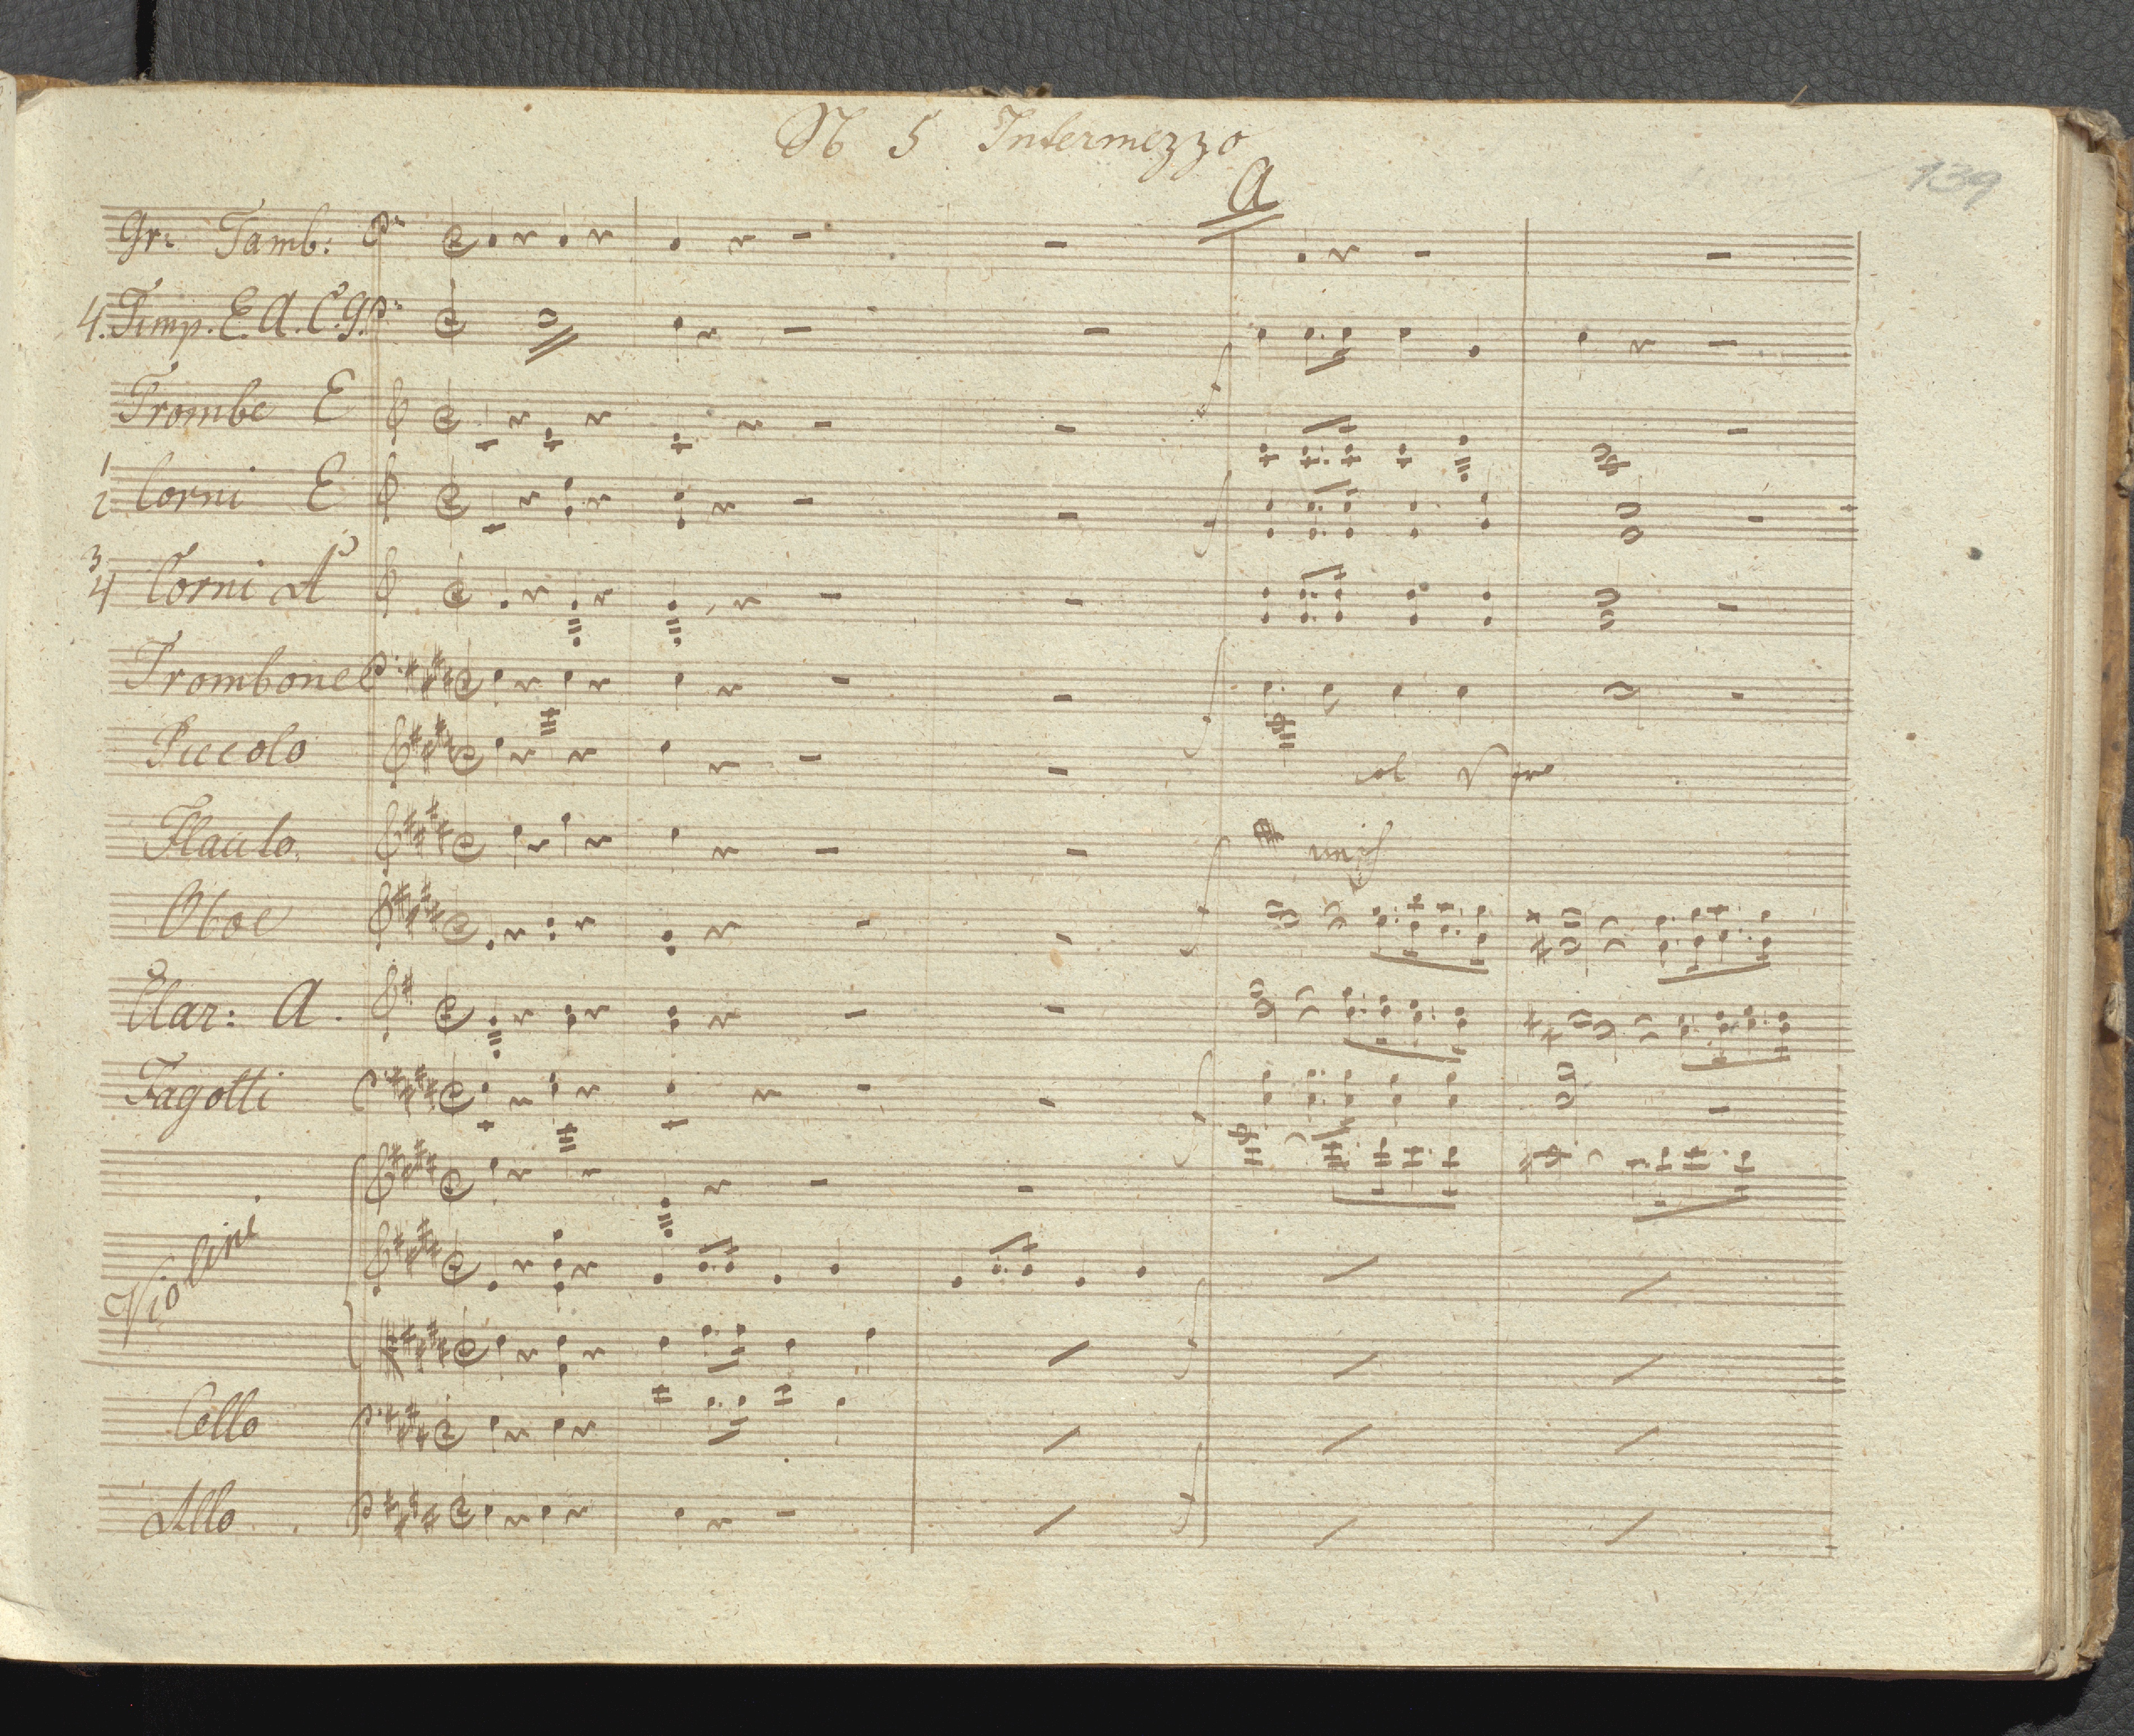 N 5 Intermezzo
139
A
Gr: Tamb:
4. Timp. E. A. C. G.
Trombe E
1
2 Corni E
3
4 Corni A
f
f
Trombone
f
Piccolo
col V pmo
Flauto
unis
f
Oboe
Clar: A.
Fagotti
f
Violini
f
Cello
f
Allo